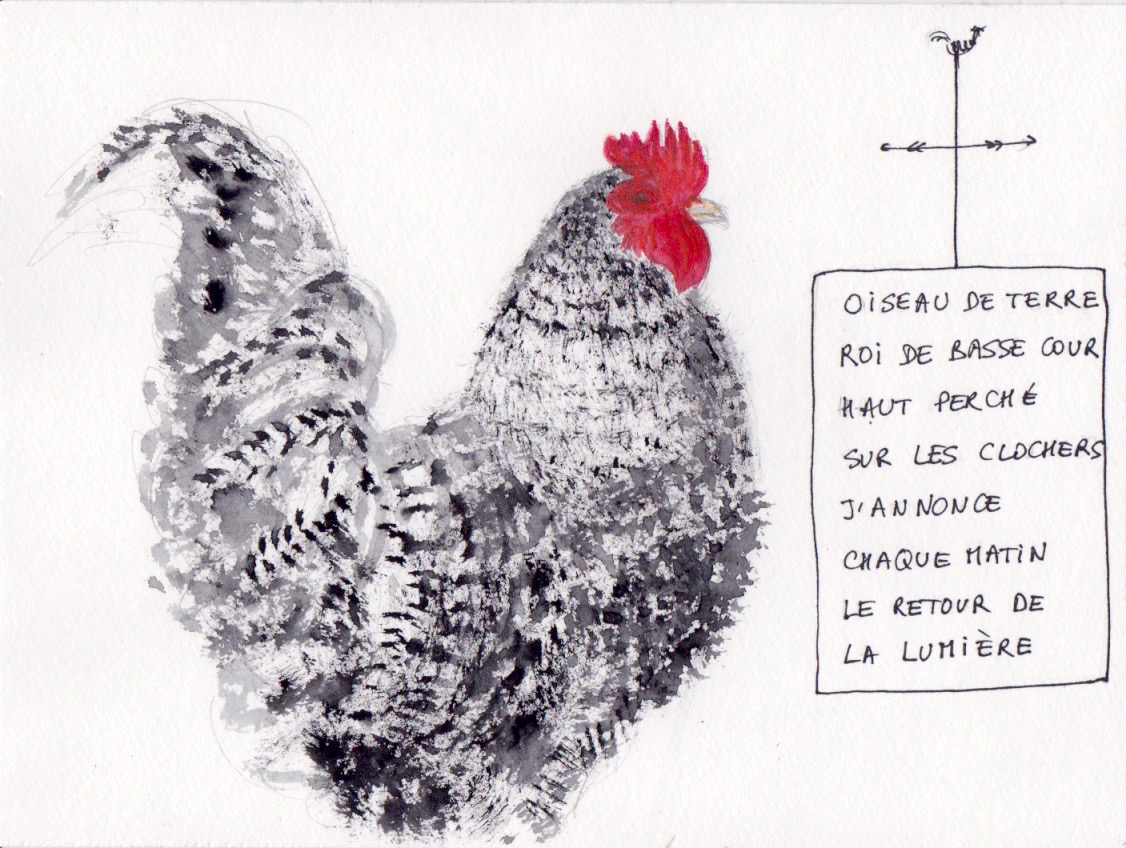 OISEAU DE TERRE
ROI DE BASSE COUR
HAUT PERCHÉ
SUR LES CLOCHERS
J'ANNONCE
CHAQUE MATIN
LE RETOUR DE
LA LUMIÈRE